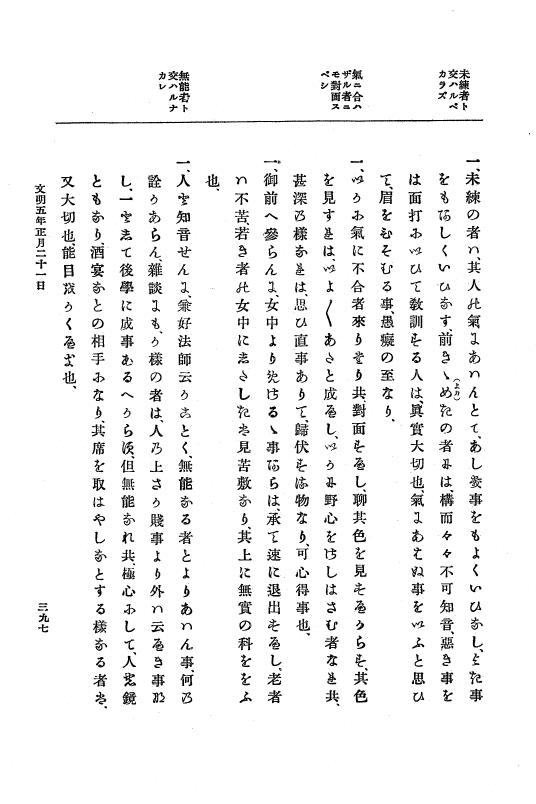 未練者ト
交ハルベ
カラズ
氣ニ合ハ
ザル者ニ
モ對面ス
ベシ
無能者ト
交ハルナ
カレ
一、未練の者ハ、其人の氣にあハんとて、あしき事をもよくいひなし、よき事
をもあしくいひなす、前の者には、構而々々不可知音、惡き事を
は面打にいひて教訓する人は、眞實大切也、氣にあはぬ事をいふと思ひ
て、眉をひそむる事、愚癡の至なり、
一、いかに氣に不合者來りたり共、對面すへし、聊其色を見すへからす、其色
を見すれは、いよ〳〵あたと成へし、いかに野心をさしはさむ者なれ共、
甚深の樣なれは、思ひ直事ありて、歸伏する物なり、可心得事也、
一、御前へ參らんに、女中よりるゝ事あらは、承て速に退出すへし、老者
ハ不苦、若き者の女中に見苦敷なり、其上に無實の科をおふ
也、
一、人を知音せんに、兼好法師云かことく、無能なる者とよりあハん事、何の
詮かあらん、雜談にも、か樣の者は、人の上賤事より外ハ云へき事な
し、一として後學に成事あるへからす、但無能なれ共、極心にして、人の鏡
ともなり、酒宴なとの相手になり、其席を取はやしなとする樣なる者は、
又大切也、能目をかくへき也、
文明五年正月二十一日
三九七